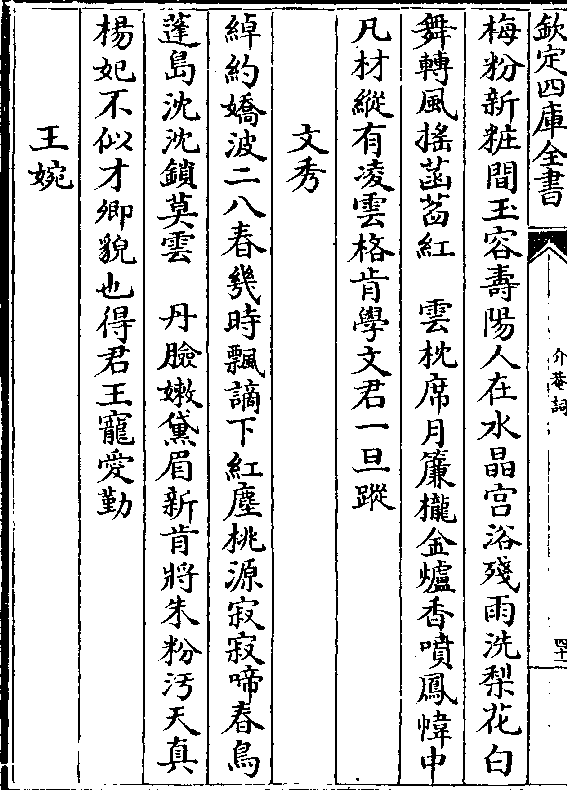 欽定四庫全書
介菴詞
四十二
梅粉新粧間玉容壽陽人在水晶宫浴殘雨洗梨花白
舞轉風搖菡萏紅　雲枕席月簾櫳金爐香噴鳳幃中
凡材縱有凌雲格肯學文君一旦蹤
文秀
綽約嬌波二八春幾時飄謫下紅塵桃源寂寂啼春鳥
蓬島沈沈鎖莫雲　丹臉嫩黛眉新肯將朱粉汚天真
楊妃不似才卿貌也得君王寵愛勤
王婉